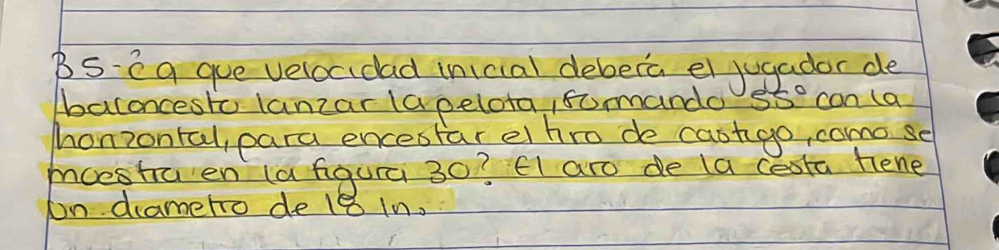 35-¿a que velocidad inicial deberá el jugador de
baloncesto lanzar la pelota, formando 55° con la
horizontal, para encestar el tiro de castigo, como se
muestra en la figura 30? El aro de la cesta tiene
un diametro de 18 in.